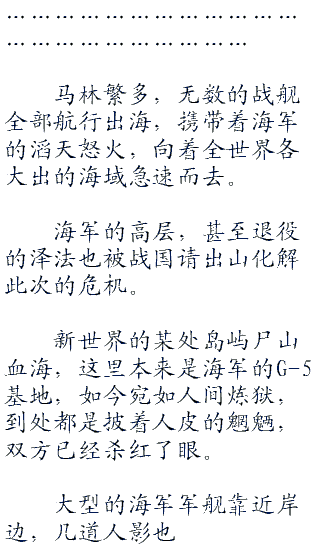 ………………………………
…………………………
马林繁多，无数的战舰
全部航行出海，携带着海军
的滔天怒火，向着全世界各
大出的海域急速而去。
海军的高层，甚至退役
的泽法也被战国请出山化解
此次的危机。
新世界的某处岛屿尸山
血海，这里本来是海军的G-5
基地，如今宛如人间炼狱，
到处都是披着人皮的魍魉，
双方已经杀红了眼。
大型的海军军舰靠近岸
边，几道人影也